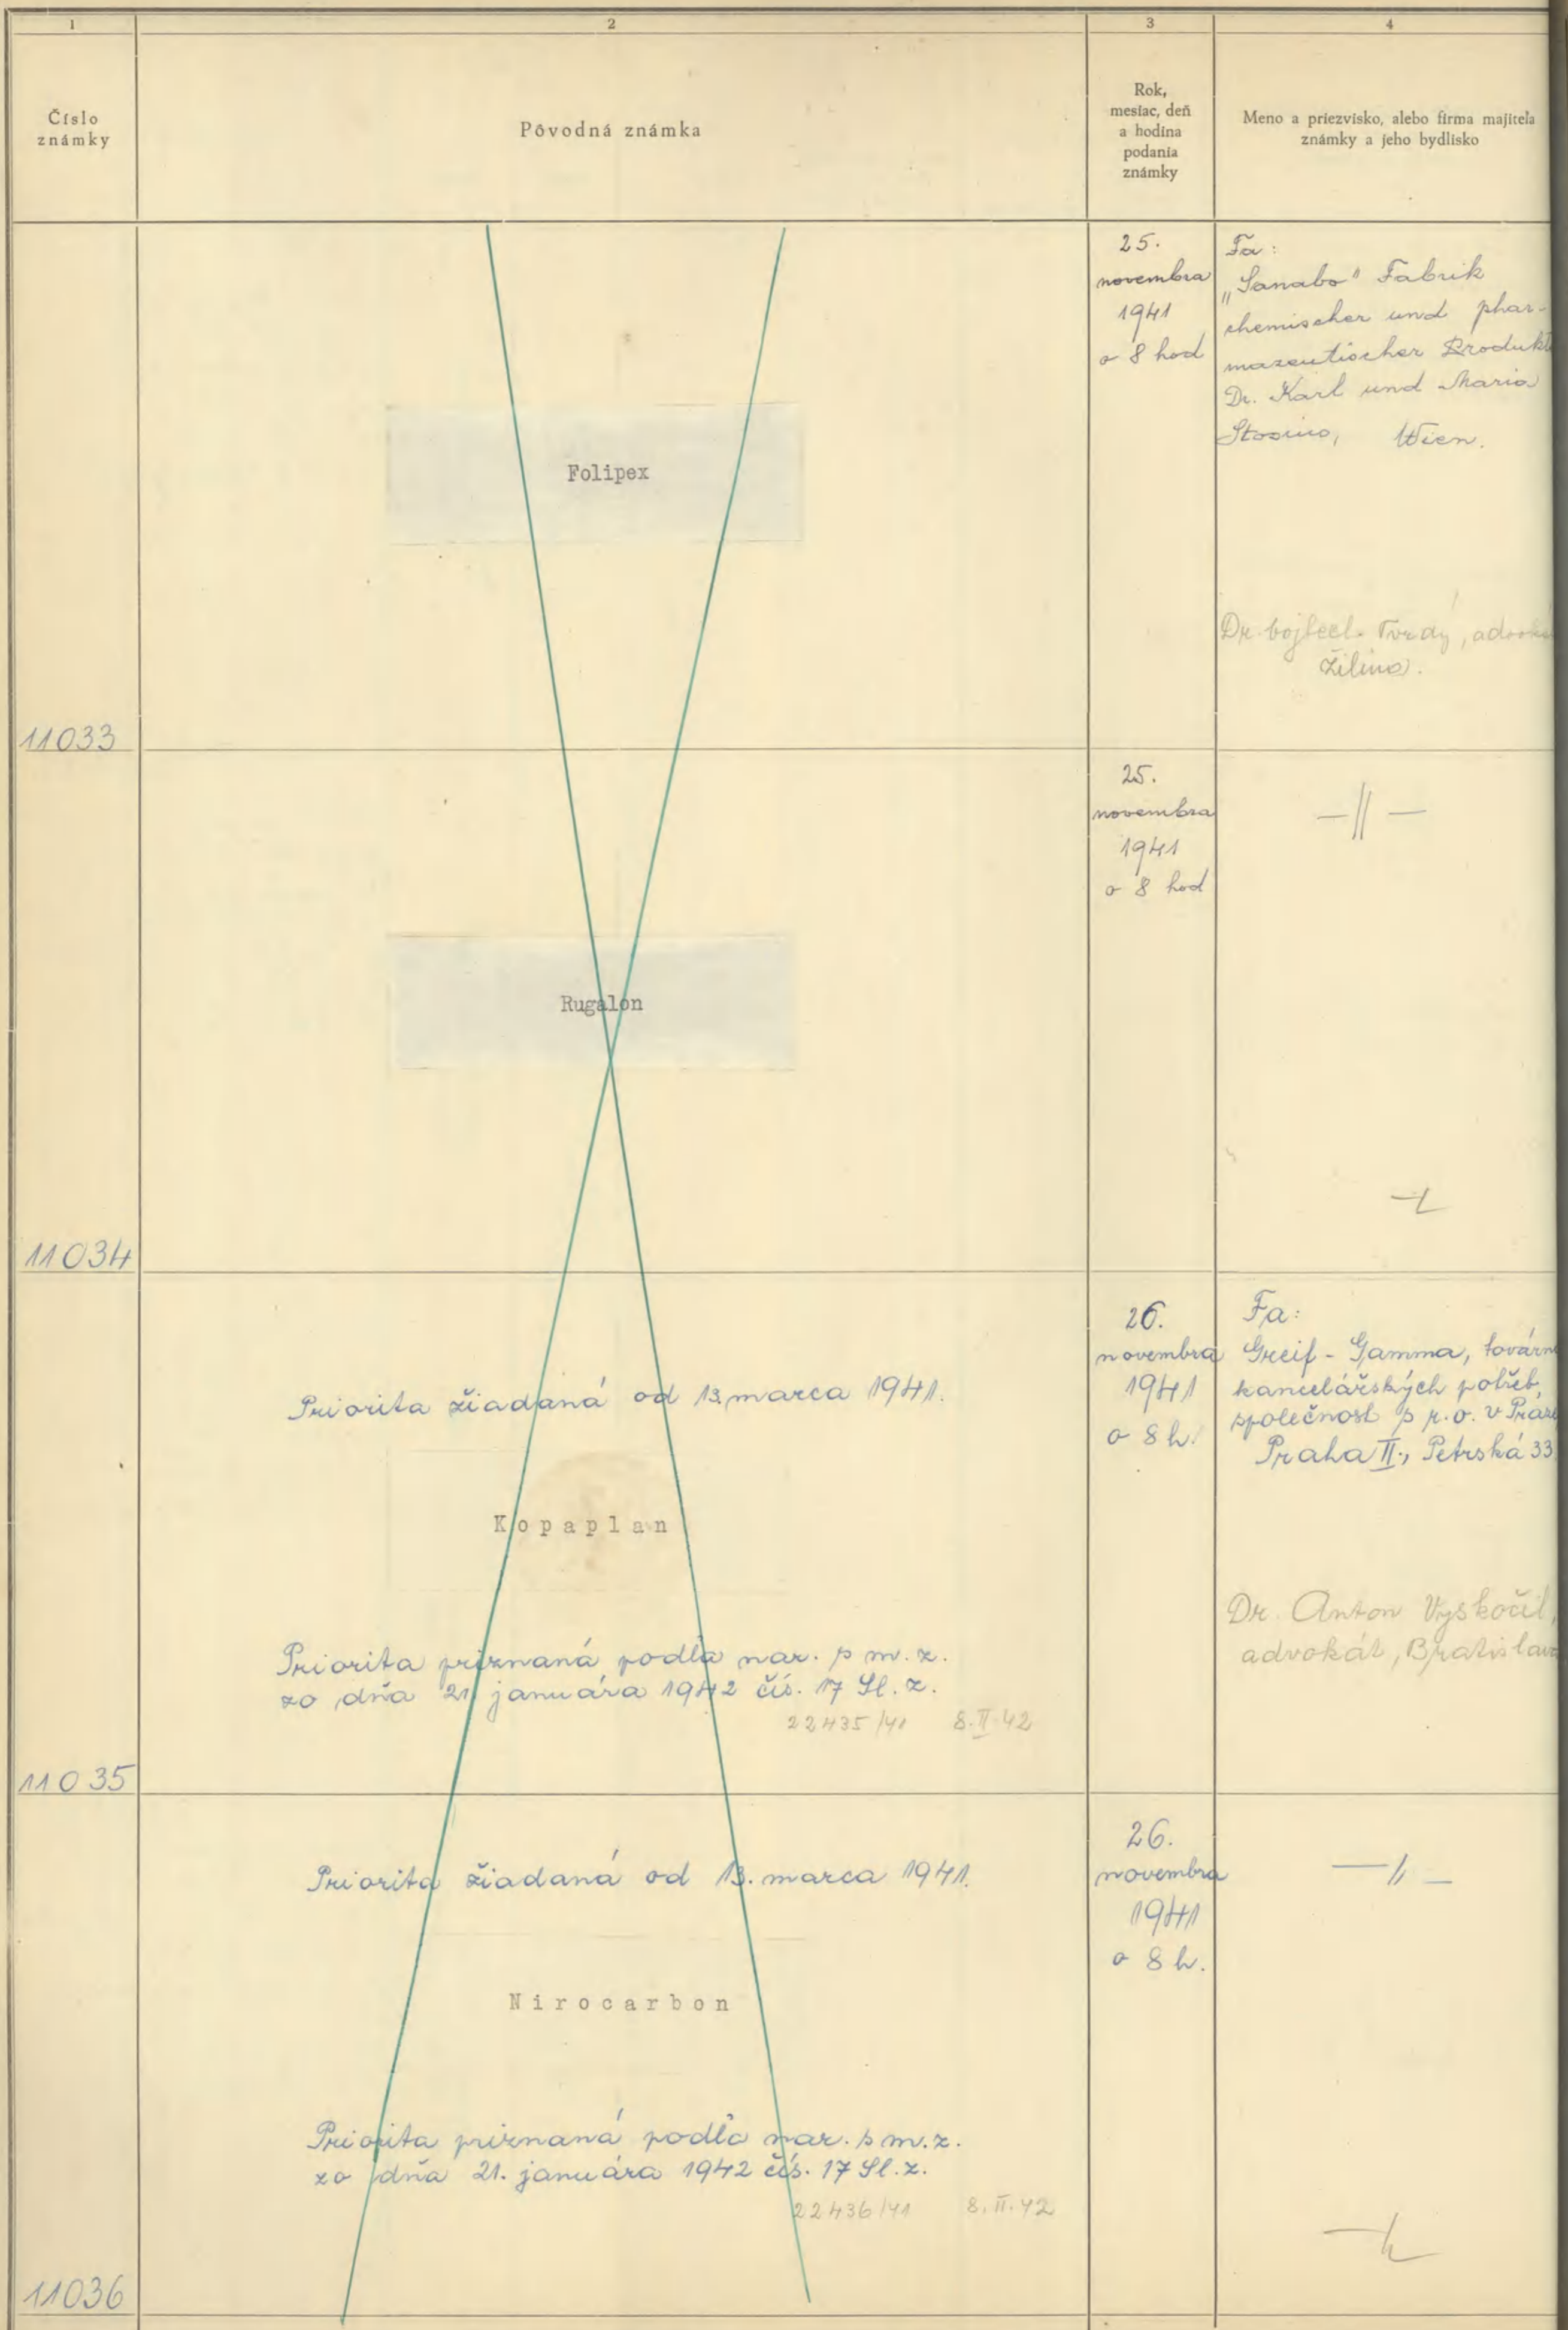 1
2
3
4
Číslo
známky
Pôvodná známka
Rok,
mesiac, deň
a hodina
podania
známky
Meno a priezvisko, alebo firma majiteľa
známky a jeho bydlisko
11033
Folipex
25.
novembra
1941
o 8 hod
Fa:
„Sanabo" Fabrik
chemischer und phar-
mazeutischer Produkt
Dr. Karl und Maria
Wien.
Dr. Tvrdý,
Žilina.
11034
Rugalon
25.
novembra
1941
o 8 hod
—〃—
11035
Priorita žiadaná od 13. marca 1941.
Kopaplan
Priorita priznaná podľa nar. s m. z.
zo dňa 21. januára 1942 čís. 17 Sl. z.
22435/41 8.II.42
26.
novembra
1941
o 8 h.
Fa:
Greif - Gamma, továrn
kancelářských potřeb,
společnost s r. o. v
Praha II., Petrská 33
Dr. Anton Vyskočil,
advokát, Bratislava
11036
Priorita žiadaná od 13. marca 1941.
Nirocarbon
Priorita priznaná podľa nar. s m. z.
zo dňa 21. januára 1942 čís. 17 Sl. z.
22436/41 8.II.42
26.
novembra
1941
o 8 h.
—〃—